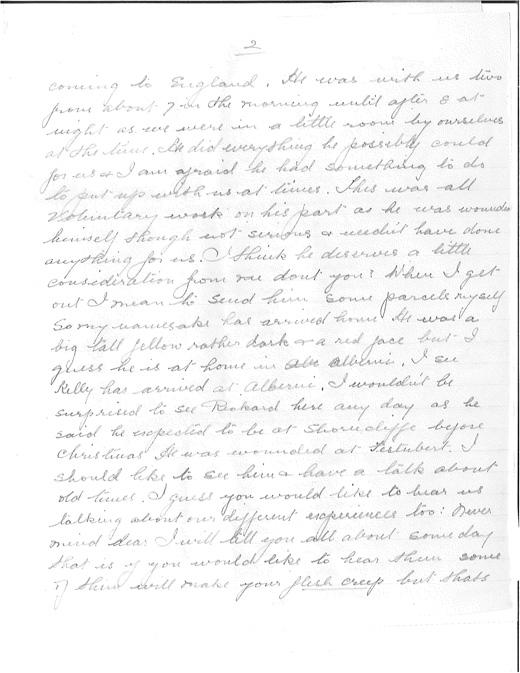 2
coming to England. He was with us two
from about 7 in the morning until after 8 at
night as we were in a little room by ourselves
at the time. He did everything he possibly could
for us & I am afraid he had something to do
to put up with us at times. This was all
Voluntary work on his part as he was wounded
himself though not serious & needn't have done
anything for us. I think he deserves a little
consideration from me dont you? When I get
out I mean to send him some parcels myself
So my namesake has arrived home. He was a
big tall fellow rather dark & a red face but I
guess he is at home in Alberni. I see
Kelly has arrived at Alberni. I wouldn't be
surprised to see Rickard here any day as he
said he expected to be at Shorncliffe before
Christmas. He was wounded at Festubert. I
should like to see him & have a talk about
old times. I guess you would like to hear us
talking about our different experiences too: Never
mind dear I will tell you all about some day
that is if you would like to hear them some
of them will make your flesh creep but thats